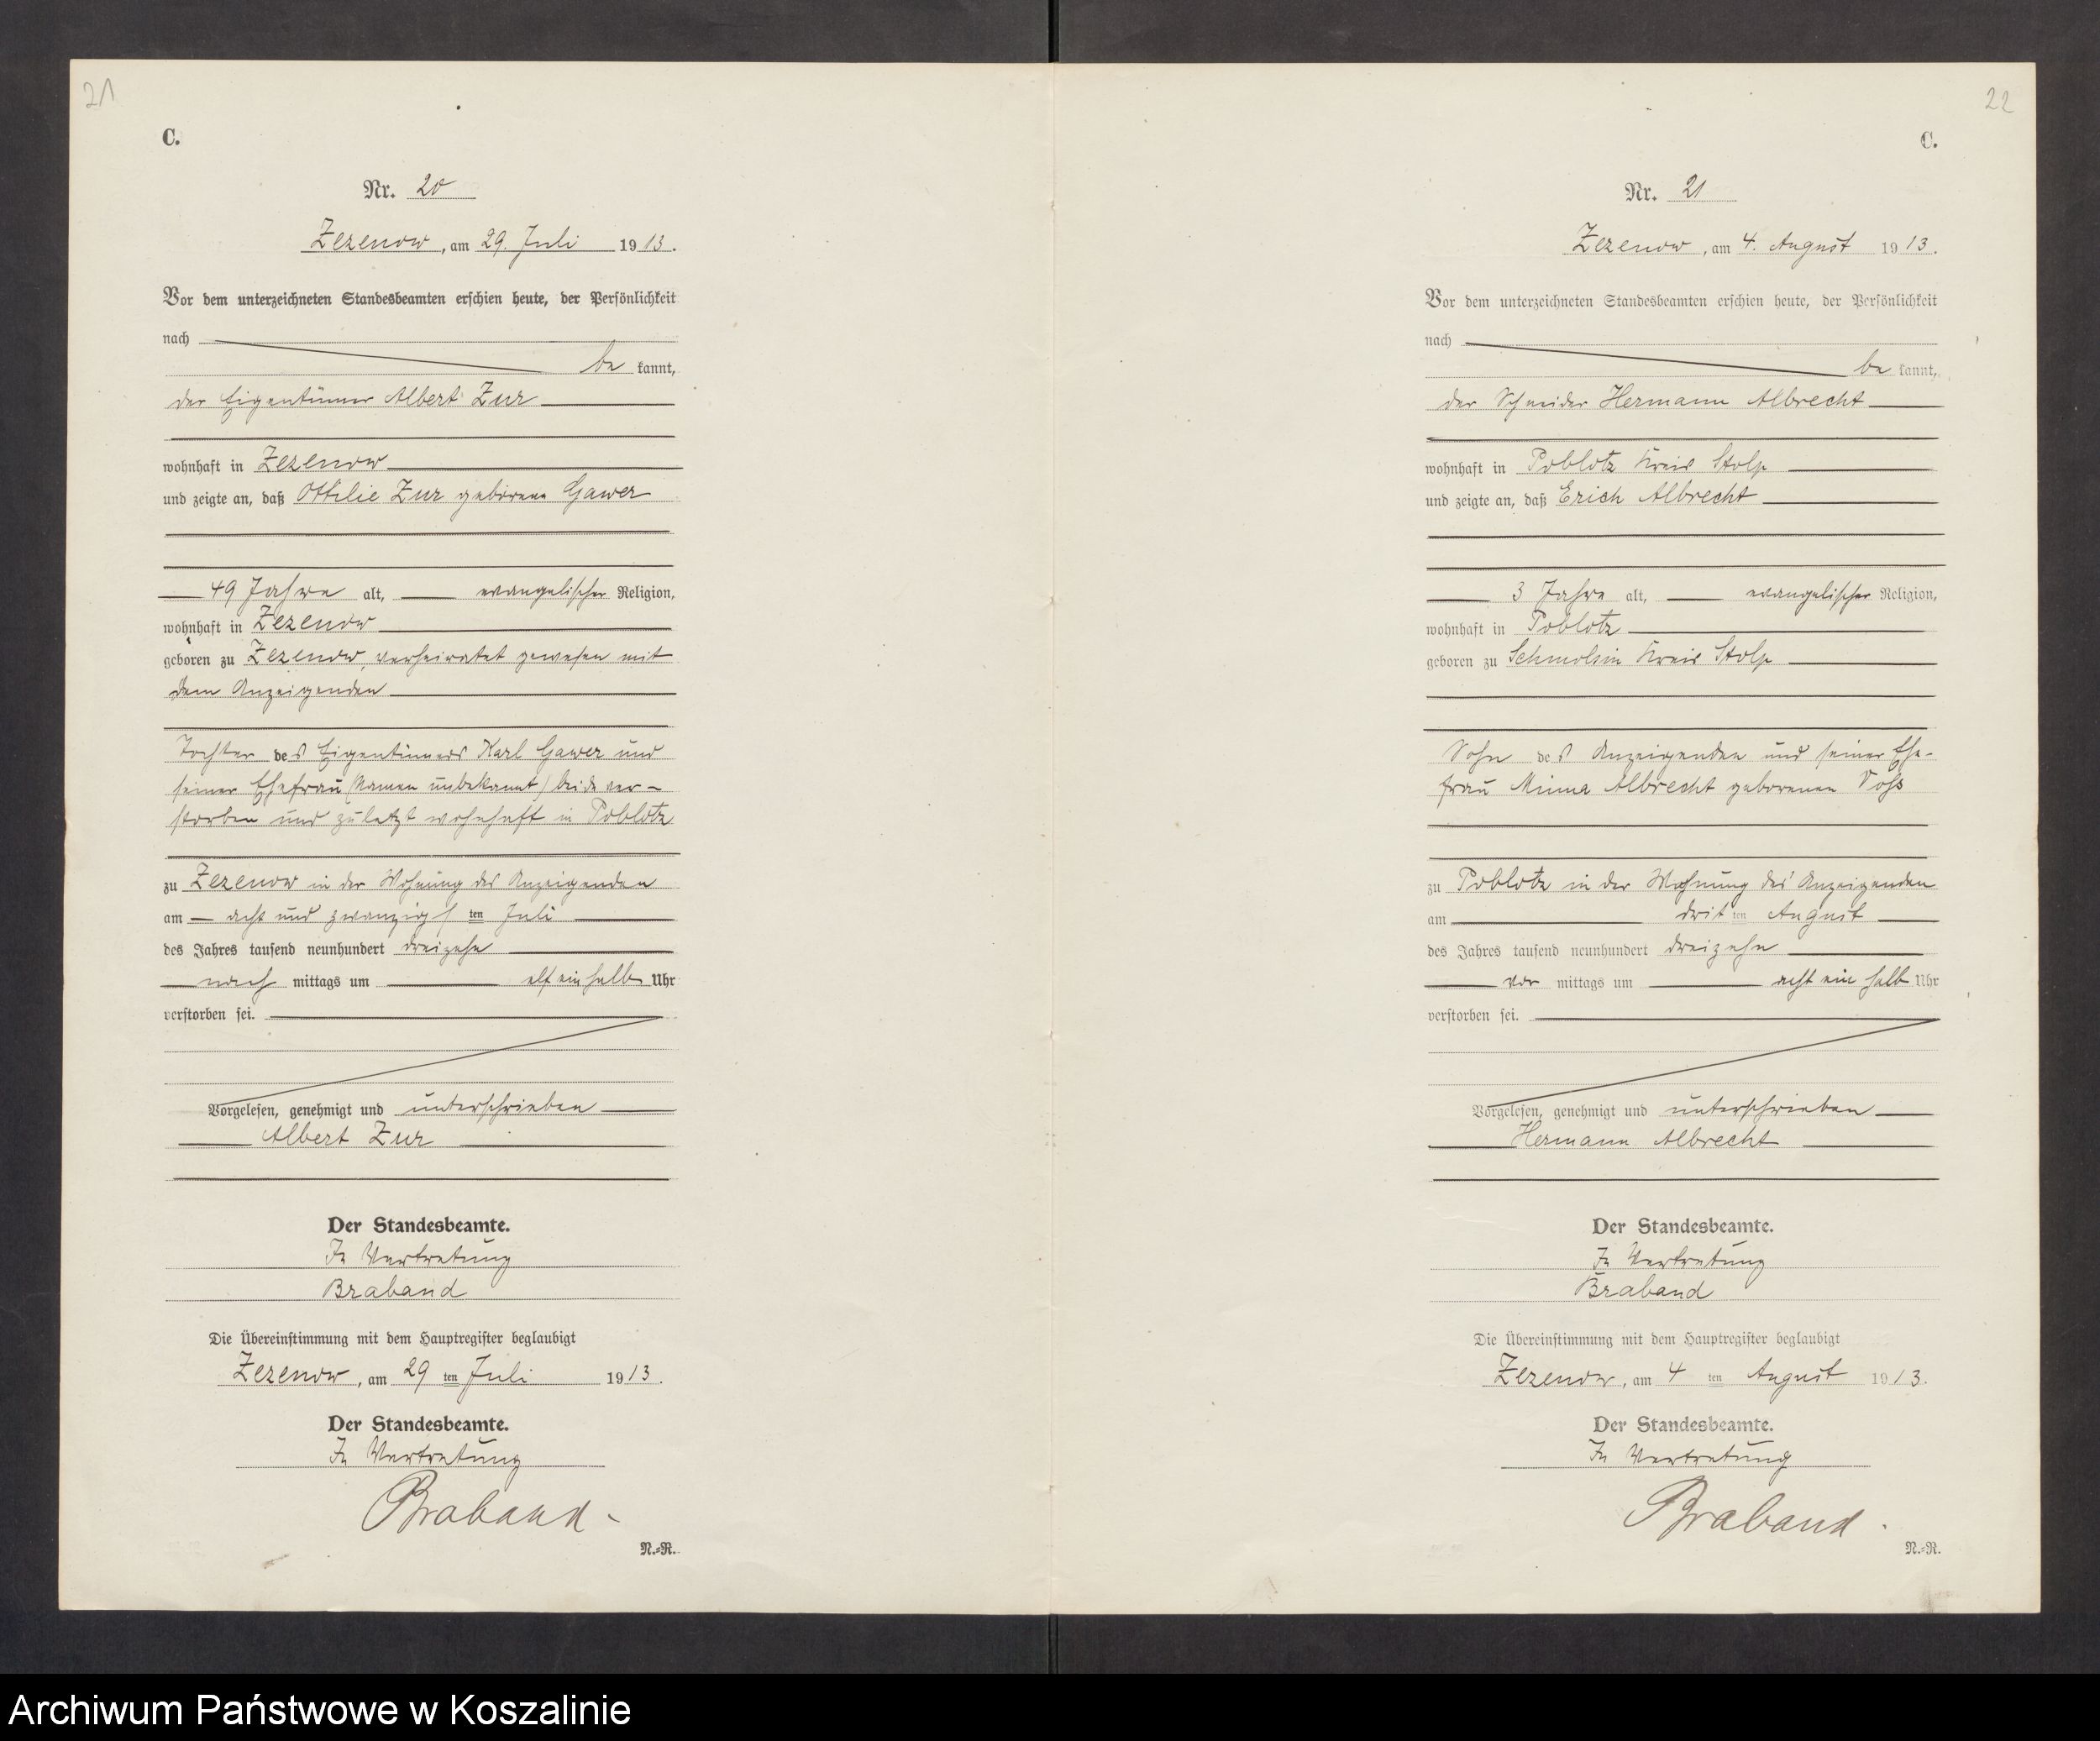 21
C.
Nr. 20
Zezenow, am 29. Juli 1913.
Vor dem unterzeichneten Standesbeamten erschien heute, der Persönlichkeit
nach
be kannt,
der Eigentümer Albert Zur
wohnhaft in Zezenow
und zeigte an, daß Ottilie Zur geborene Gawer
49 Jahre alt, evangelischer Religion,
wohnhaft in Zezenow
geboren zu Zezenow, verheiratet gewesen mit
dem Anzeigenden
Tochter des Eigentümers Karl Gawer und
seiner Ehefrau (Namen unbekannt) beide ver-
storben und zuletzt wohnhaft in Poblotz
zu Zezenow in der Wohnung des Anzeigenden
am acht und zwanzigs ten Juli
des Jahres tausend neunhundert dreizehn
nach mittags um elf ein halb Uhr
verstorben sei.
Vorgelesen, genehmigt und unterschrieben
Albert Zur
Der Standesbeamte.
In Vertretung
Braband
Die Übereinstimmung mit dem Hauptregister beglaubigt
Zezenow, am 29 ten Juli 1913.
Der Standesbeamte.
In Vertretung
Braband
N.=R.
22
C.
Nr. 21
Zezenow, am 4. August 1913.
Vor dem unterzeichneten Standesbeamten erschien heute, der Persönlichkeit
nach
be kannt,
der Schneider Hermann Albrecht
wohnhaft in Poblotz Kreis Stolp
und zeigte an, daß Erich Albrecht
3 Jahre alt, evangelischer Religion,
wohnhaft in Poblotz
geboren zu Schmolsin Kreis Stolp
Sohn des Anzeigenden und seiner Ehe-
frau Minna Albrecht geborenen Voß
zu Poblotz in der Wohnung des Anzeigenden
am drit ten August
des Jahres tausend neunhundert dreizehn
vor mittags um acht ein halb Uhr
verstorben sei.
Vorgelesen, genehmigt und unterschrieben
Hermann Albrecht
Der Standesbeamte.
In Vertretung
Braband
Die Übereinstimmung mit dem Hauptregister beglaubigt
Zezenow, am 4 ten August 1913.
Der Standesbeamte.
In Vertretung
Braband
N.=R.
Archiwum Państwowe w Koszalinie